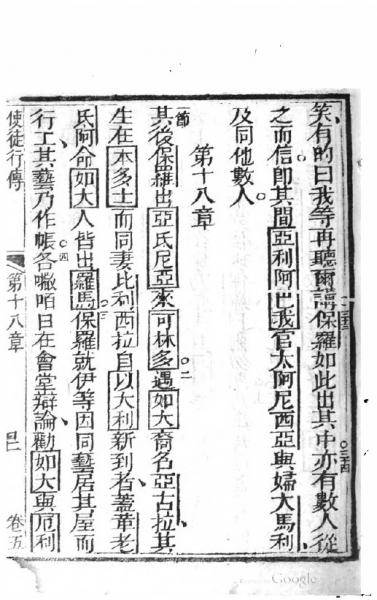 笑有的曰我等再聽爾講保羅如此出其中亦有數人從
之而信卽其間亞利阿巴我官太阿尼西亞與婦大馬利
及同他數人
第十八章
一節
其後保羅出亞氏尼亞來可林多遇如大裔名亞古拉其
生在本多士而同妻比利西拉自以大利新到者蓋革老
氏阿命如大人皆出羅馬保羅就伊等因同藝居其屋而
行工其藝乃作帳各嗽咟日在會堂辯論勸如大與厄利
使徒行傳
第十八章
卷五
Google